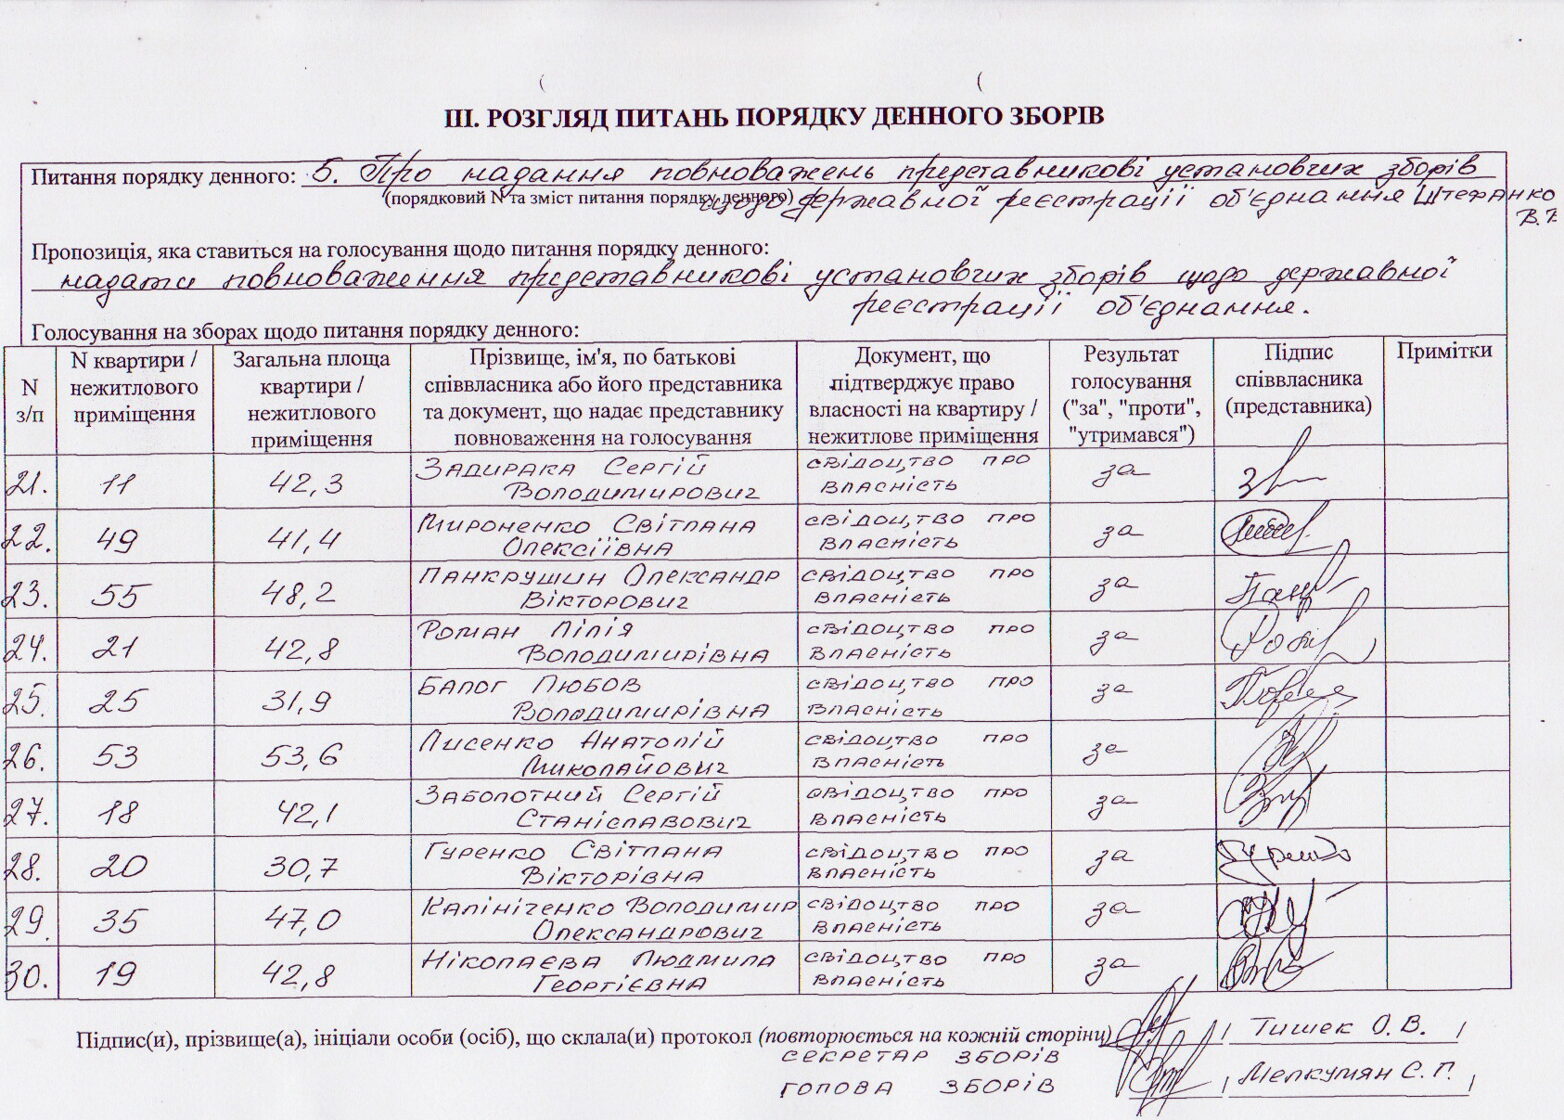 III. РОЗГЛЯД ПИТАНЬ ПОРЯДКУ ДЕННОГО ЗБОРІВ
Питання порядку денного: 5. Про надання повноважень представникові установчих зборів
(порядковий N та зміст питання порядку денного) щодо державної реєстрації об'єднання Штефанко
В.
Пропозиція, яка ставиться на голосування щодо питання порядку денного:
надати повноваження представникові установчих зборів щодо державної
реєстрації об'єднання.
Голосування на зборах щодо питання порядку денного:
N з/п N квартири / нежитлового приміщення Загальна площа квартири / нежитлового приміщення Прізвище, ім'я, по батькові співвласника або його представника та документ, що надає представнику повноваження на голосування Документ, що підтверджує право власності на квартиру / нежитлове приміщення Результат голосування ("за", "проти", "утримався") Підпис співвласника (представника) Примітки
21. 11 42,3 Задирака Сергій Володимирович свідоцтво про власність за
22. 49 41,4 Мироненко Світлана Олексіївна свідоцтво про власність за
23. 55 48,2 Панкрушин Олександр Вікторович свідоцтво про власність за
24. 21 42,8 Роман Лілія Володимирівна свідоцтво про власність за
25. 25 31,9 Балог Любов Володимирівна свідоцтво про власність за
26. 53 53,6 Лисенко Анатолій Миколайович свідоцтво про власність за
27. 18 42,1 Заболотний Сергій Станіславович свідоцтво про власність за
28. 20 30,7 Гуренко Світлана Вікторівна свідоцтво про власність за
29. 35 47,0 Калініченко Володимир Олександрович свідоцтво про власність за
30. 19 42,8 Ніколаєва Людмила Георгієвна свідоцтво про власність за
Підпис(и), прізвище(а), ініціали особи (осіб), що склала(и) протокол (повторюється на кожній сторінці) / Тишек О.В. /
секретар зборів
голова зборів / Мелкумян С.Г. /